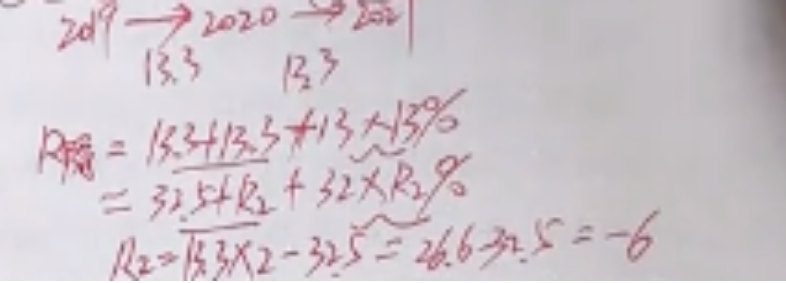 2019 → 2020 → 2021
13.3 13.3
R隔 = 13.3+13.3+13×13%
= 32.5+R₂+32×R₂%
R₂=13.3×2-32.5=26.6-32.5=-6